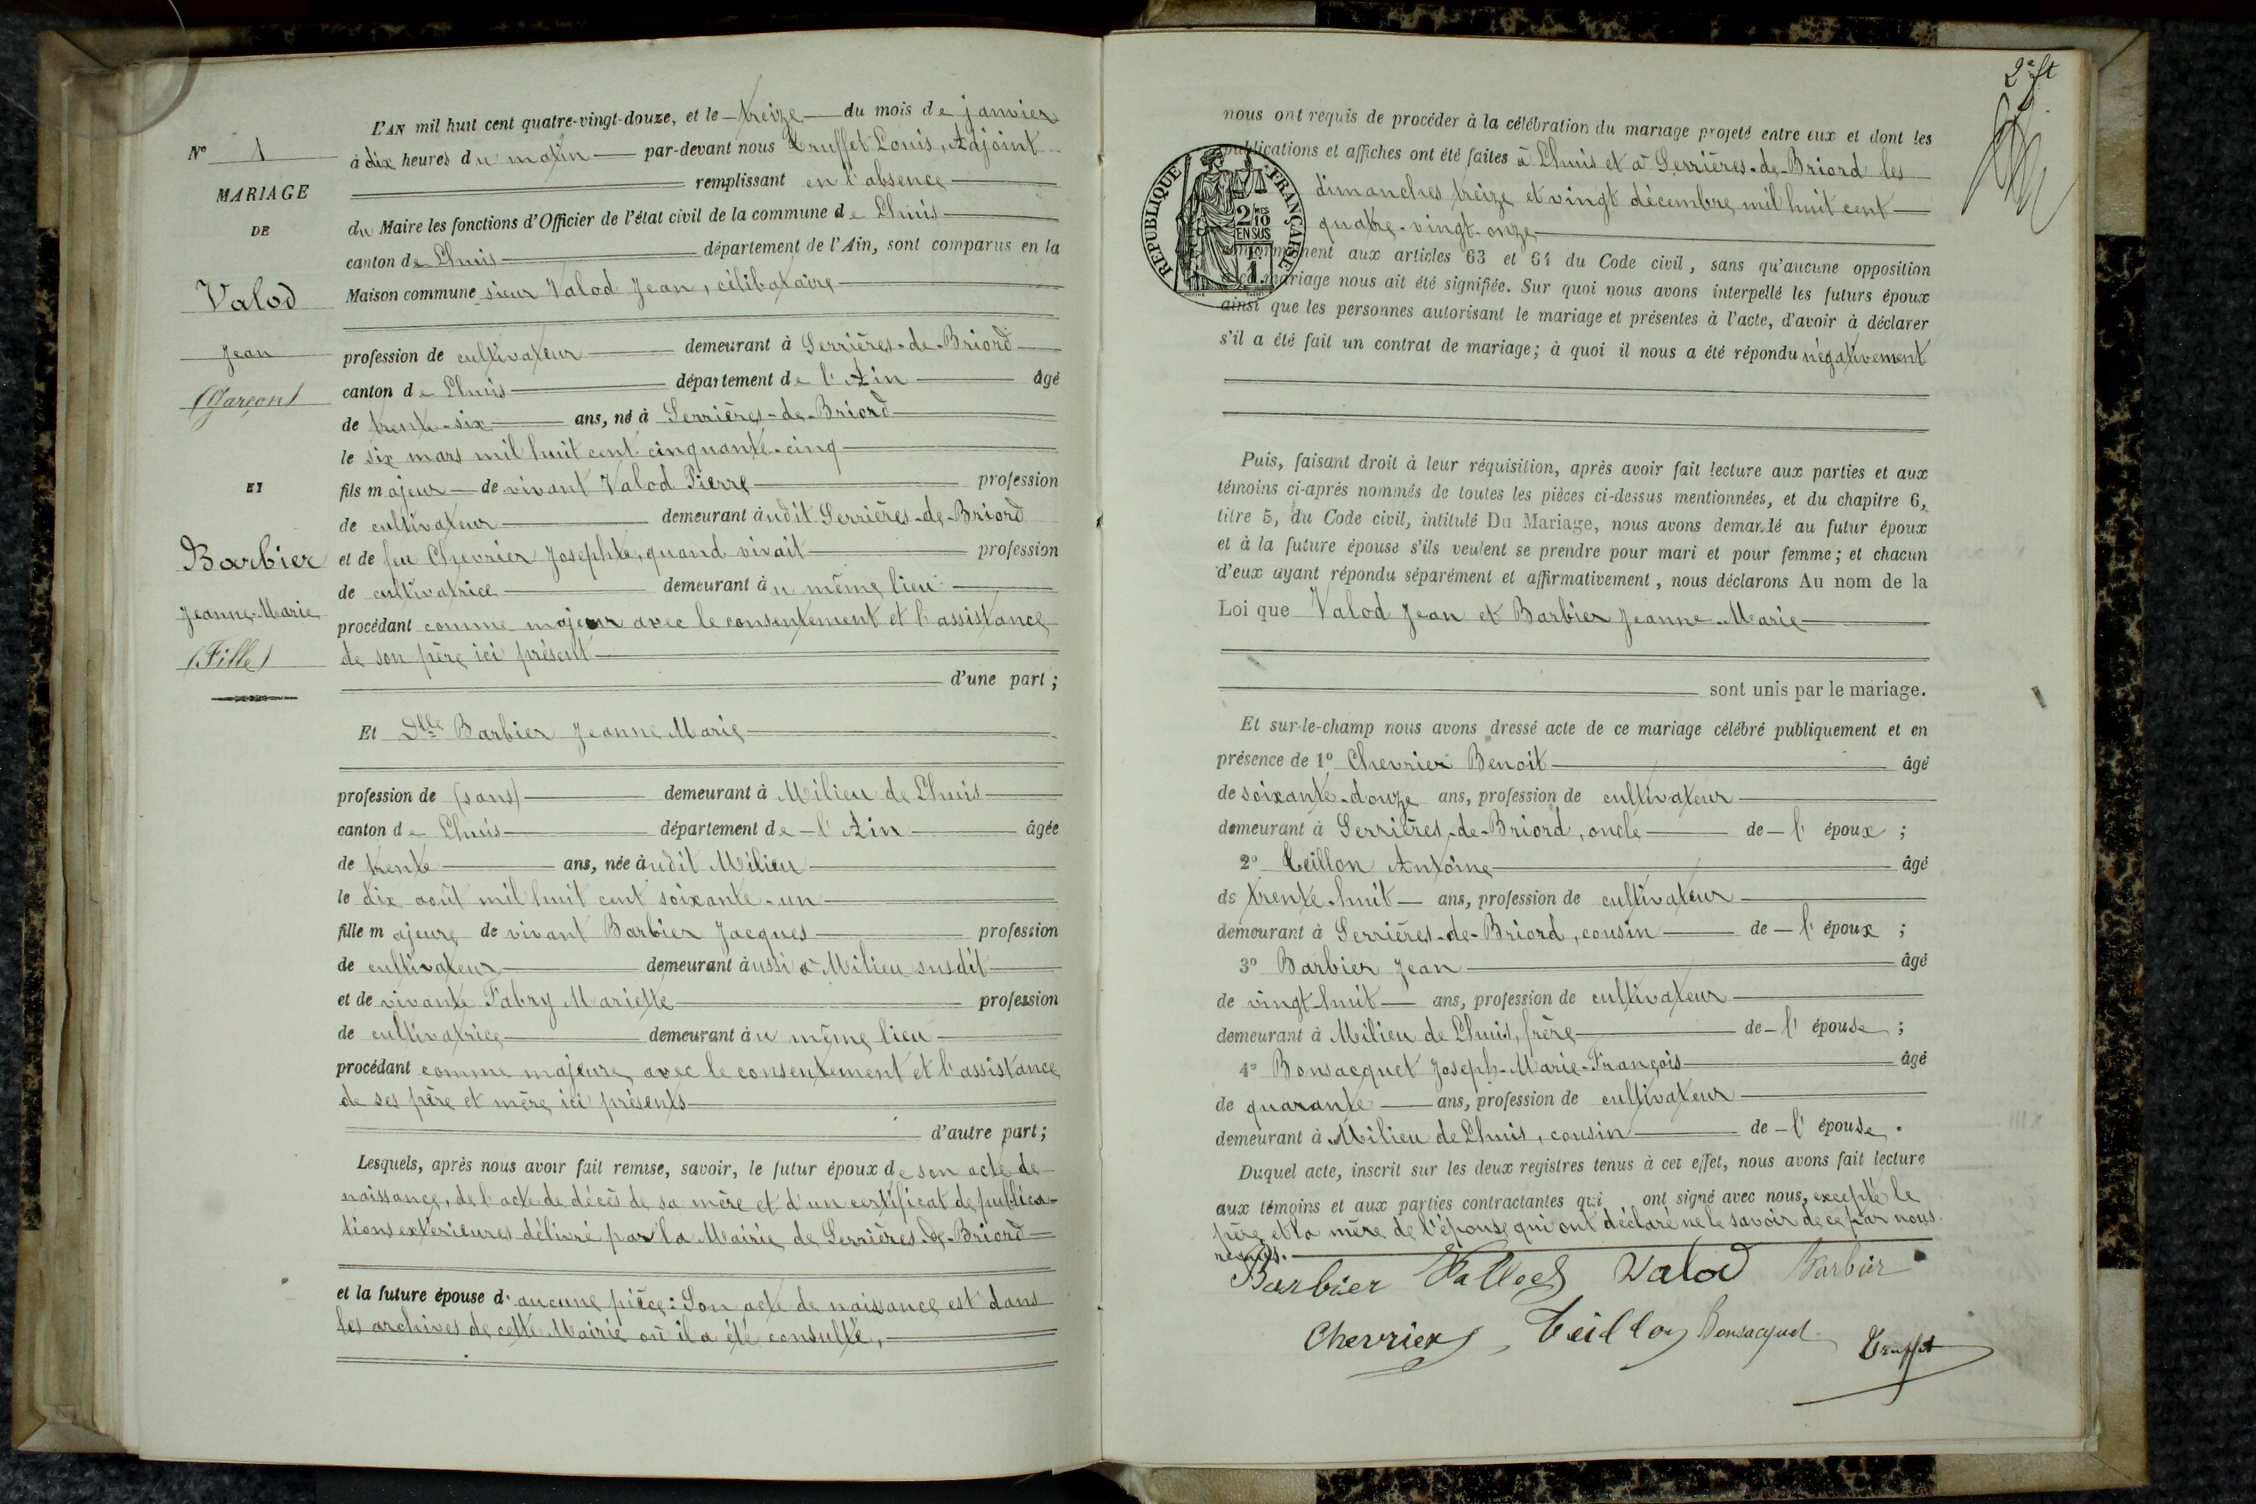 N° 1
MARIAGE
DE
Valod
Jean
(Garçon)
ET
Barbier
Jeanne-Marie
(Fille)
L'AN mil huit cent quatre-vingt-douze, et le treize du mois de janvier
à dix heures du matin par-devant nous Truffet Louis, Adjoint
remplissant en l'absence
du Maire les fonctions d'Officier de l'état civil de la commune de Lhuis
canton de Lhuis département de l'Ain, sont comparus en la
Maison commune sieur Valod Jean, célibataire
profession de cultivateur demeurant à Serrières-de-Briord
canton de Lhuis département de l'Ain âgé
de trente-six ans, né à Serrières-de-Briord
le six mars mil huit cent cinquante-cinq
fils majeur de vivant Valod Pierre profession
de cultivateur demeurant àudit Serrières-de-Briord
et de feu Chevrier Josephte, quand vivait profession
de cultivatrice demeurant àu même lieu
procédant comme majeur avec le consentement et l'assistance
de son père ici présent
d'une part ;
Et Dlle Barbier Jeanne Marie
profession de (sans) demeurant à Milieu de Lhuis
canton de Lhuis département de l'Ain âgée
de trente ans, née àudit Milieu
le dix août mil huit cent soixante-un
fille majeure de vivant Barbier Jacques profession
de cultivateur demeurant àussi à Milieu susdit
et de vivante Fabry Mariette profession
de cultivatrice demeurant àu même lieu
procédant comme majeure avec le consentement et l'assistance
de ses père et mère ici présents
d'autre part ;
Lesquels, après nous avoir fait remise, savoir, le futur époux de son acte de
naissance, de l'acte de décès de sa mère et d'un certificat de publica-
tions extérieures délivré par la Mairie de Serrières-de-Briord
et la future épouse d'aucune pièce : Son acte de naissance est dans
les archives de cette Mairie où il a été consulté,
2e ft
nous ont requis de procéder à la célébration du mariage projeté entre eux et dont les
publications et affiches ont été faites à Lhuis et à Serrières-de-Briord les
dimanches treize et vingt décembre mil huit cent
quatre-vingt-onze
conformément aux articles 63 et 64 du Code civil, sans qu'aucune opposition
à ce mariage nous ait été signifiée. Sur quoi nous avons interpellé les futurs époux
ainsi que les personnes autorisant le mariage et présentes à l'acte, d'avoir à déclarer
s'il a été fait un contrat de mariage ; à quoi il nous a été répondu négativement
RÉPUBLIQUE FRANÇAISE
2 MES
10
EN SUS
1
Puis, faisant droit à leur réquisition, après avoir fait lecture aux parties et aux
témoins ci-après nommés de toutes les pièces ci-dessus mentionnées, et du chapitre 6,
titre 5, du Code civil, intitulé Du Mariage, nous avons demandé au futur époux
et à la future épouse s'ils veulent se prendre pour mari et pour femme ; et chacun
d'eux ayant répondu séparément et affirmativement, nous déclarons Au nom de la
Loi que Valod Jean et Barbier Jeanne-Marie
sont unis par le mariage.
Et sur-le-champ nous avons dressé acte de ce mariage célébré publiquement et en
présence de 1° Chevrier Benoit âgé
de soixante-douze ans, profession de cultivateur
demeurant à Serrières-de-Briord, oncle de l'époux ;
2° Teillon Antoine âgé
de trente-huit ans, profession de cultivateur
demeurant à Serrières-de-Briord, cousin de l'époux ;
3° Barbier Jean âgé
de vingt-huit ans, profession de cultivateur
demeurant à Milieu de Lhuis, frère de l'épouse ;
4° Bonsacquet Joseph-Marie-François âgé
de quarante ans, profession de cultivateur
demeurant à Milieu de Lhuis, cousin de l'épouse.
Duquel acte, inscrit sur les deux registres tenus à cet effet, nous avons fait lecture
aux témoins et aux parties contractantes qui ont signé avec nous, excepté le
père et la mère de l'épouse qui ont déclaré ne le savoir de ce par nous
requis.
Barbier Valod Barbier
Chevrier Teillon Bonsacquet Truffet